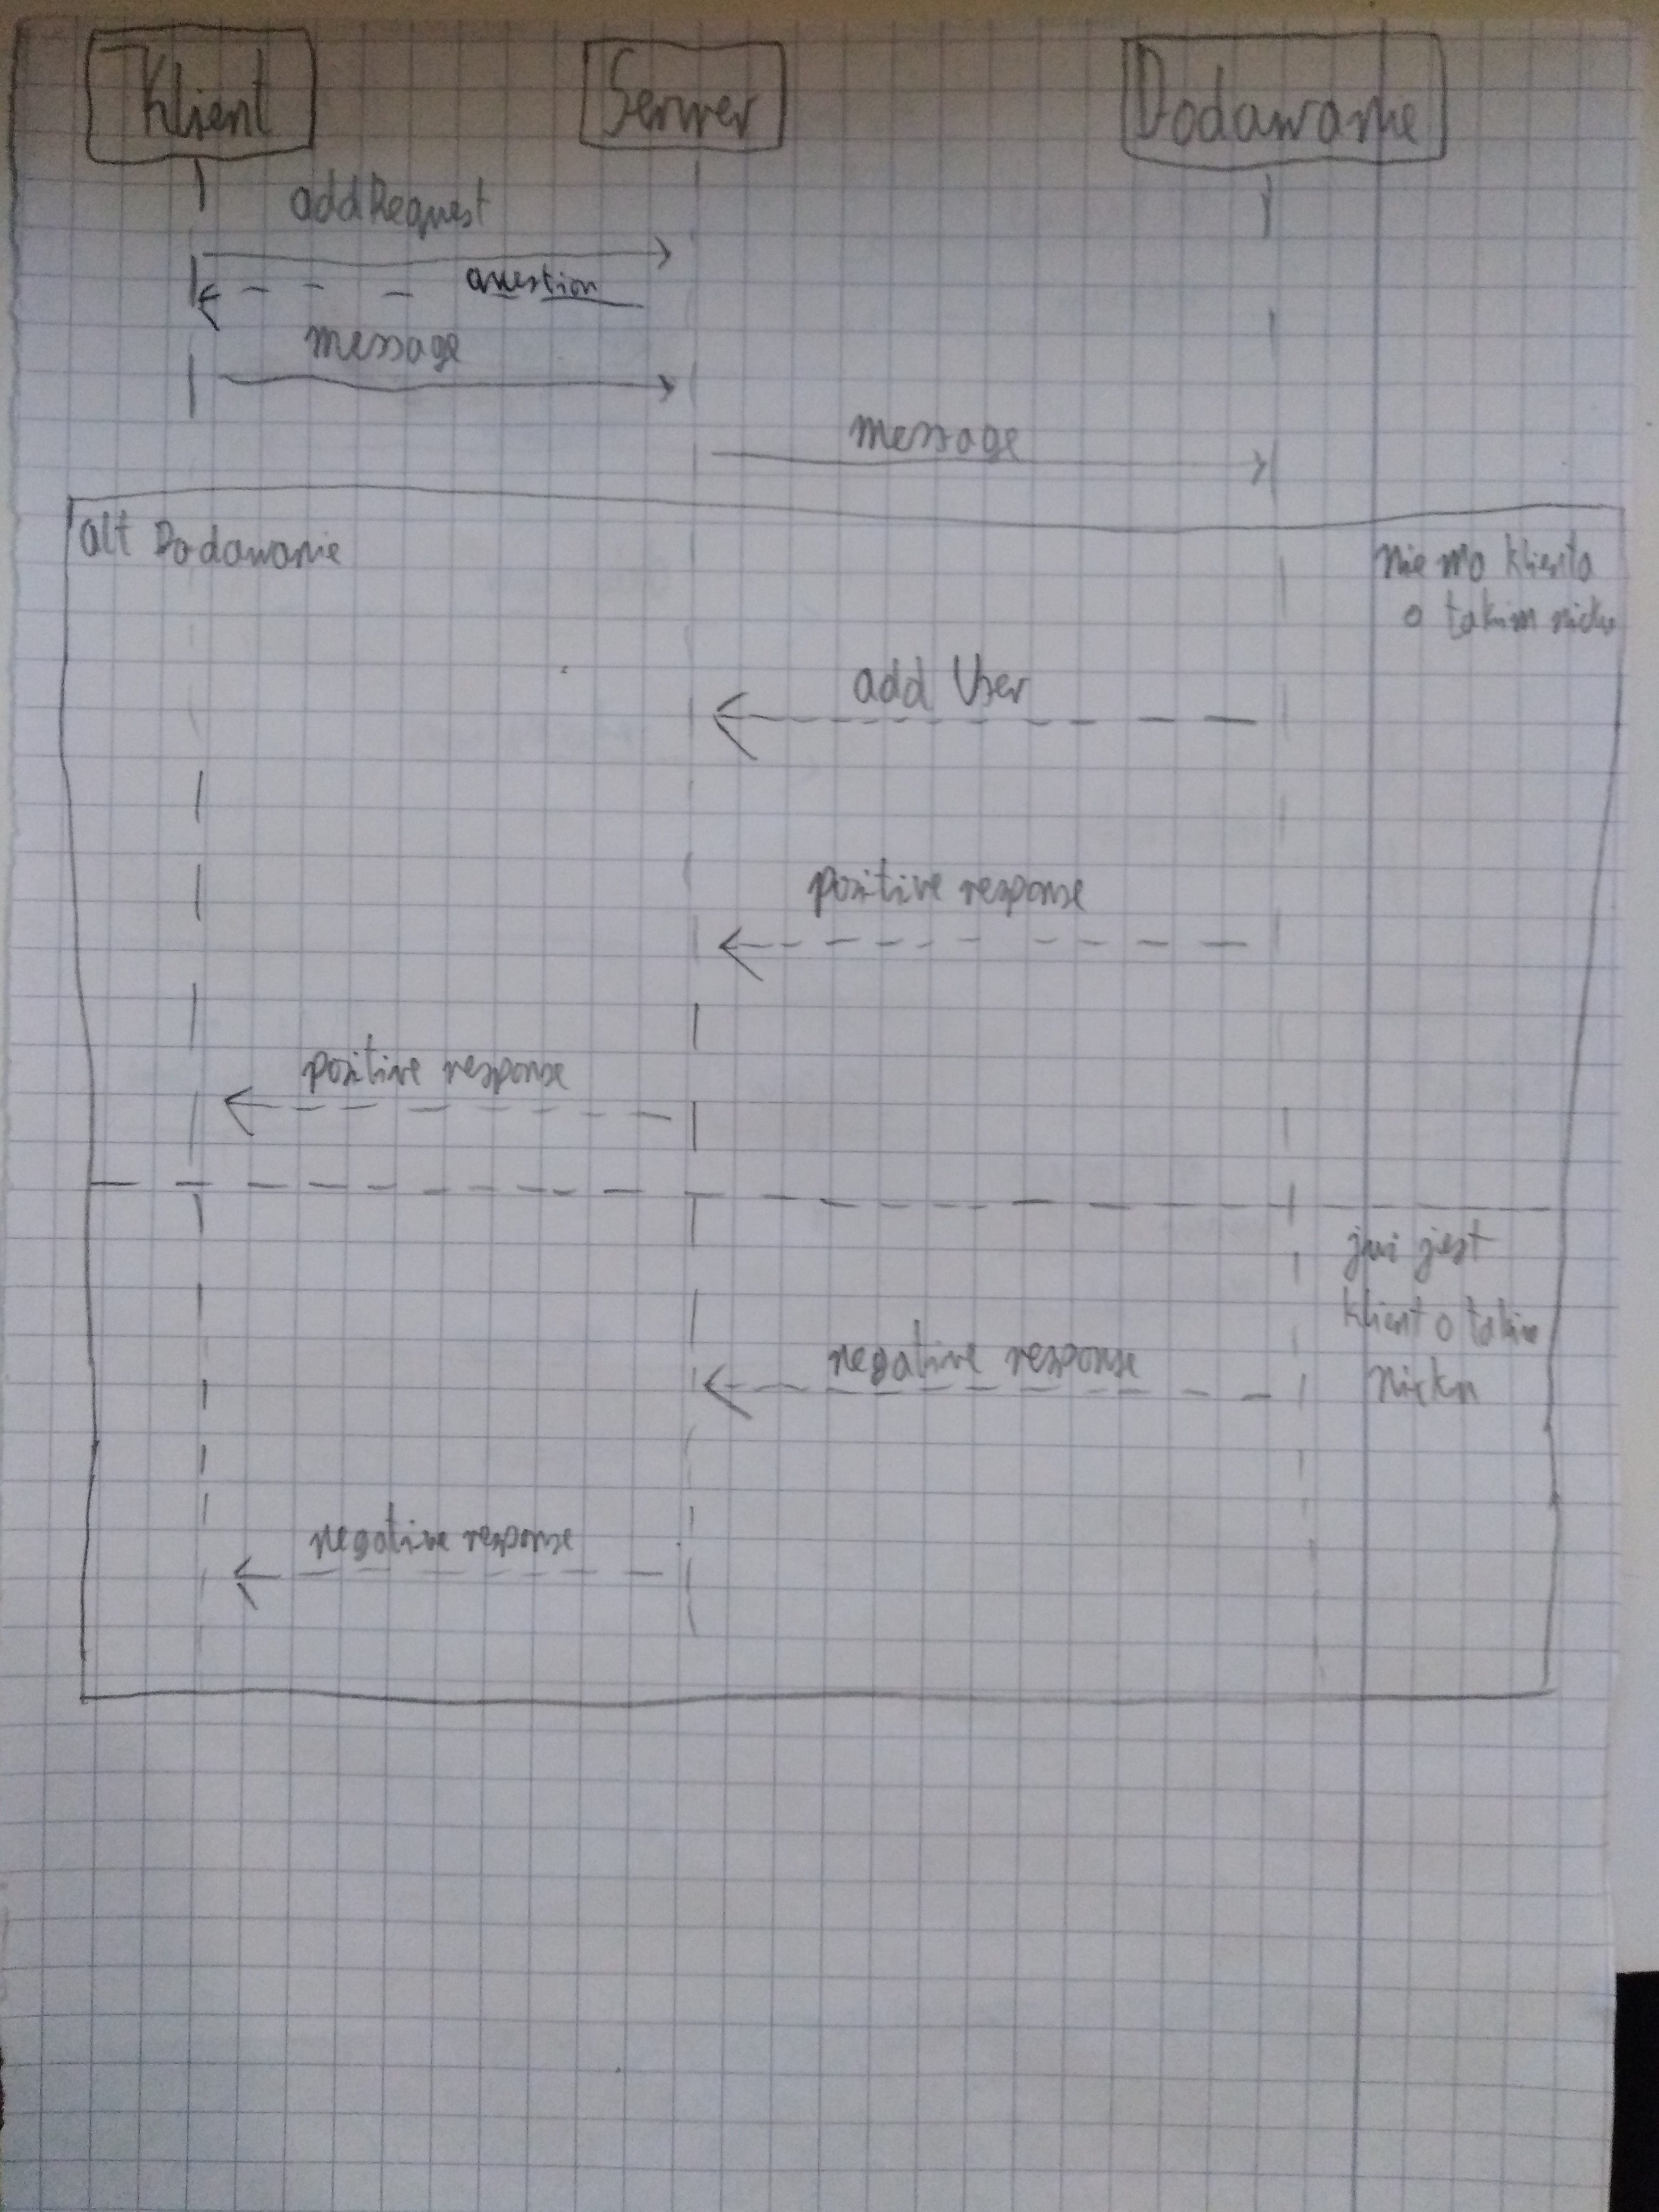 Klient
Serwer
Dodawanie
addRequest
question
message
message
alt Dodawanie
nie ma klienta
o takim nicku
add User
positive response
positive response
już jest
klient o takim
nicku
negative response
negative response